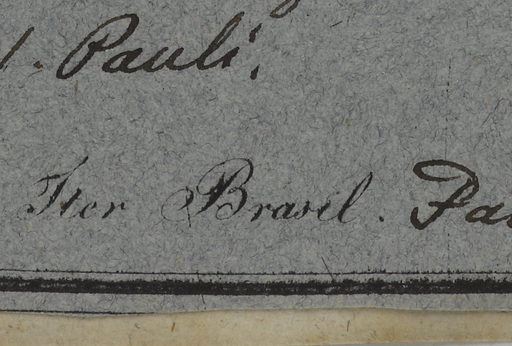 Pauli.
Iter Brasil.